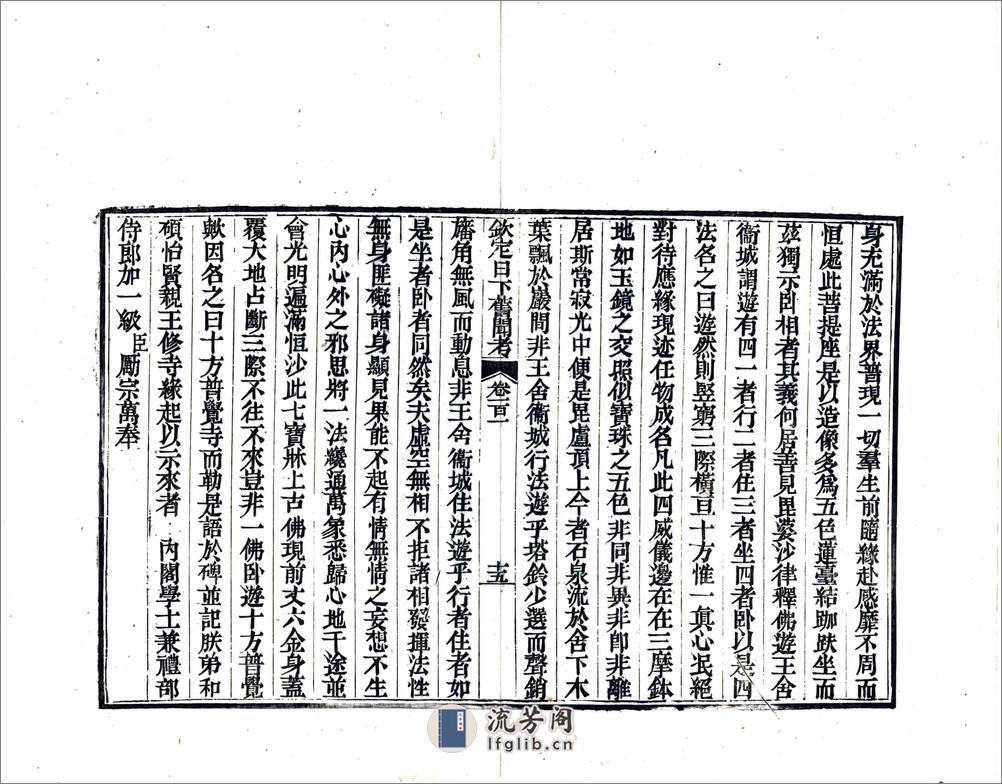 身充滿於法界普現一切羣生前隨緣赴感靡不周而
恒處此菩提座是以造像多爲五色蓮臺結跏趺坐而
茲獨示卧相者其義何居善見毘婆沙律釋佛遊王舍
衞城謂遊有四一者行二者住三者坐四者卧以是四
法名之曰遊然則竪窮三際橫亘十方惟一眞心泯絕
對待應緣現迹任物成名凡此四威儀邊在在三摩鉢
地如玉鏡之交照似寶珠之五色非同非異非卽非離
居斯常寂光中便是毘盧頂上今者石泉流於舍下木
葉飄於巖間非王舍衞城行法遊乎塔鈴少選而聲銷
欽定日下舊聞考 卷一百一 十五
旛角無風而動息非王舍衞城住法遊乎行者住者如
是坐者卧者同然矣夫虛空無相不拒諸相發揮法性
無身匪礙諸身顯見果能不起有情無情之妄想不生
心內心外之邪思將一法纔通萬象悉歸心地千途並
會光明遍滿恒沙此七寶牀上古佛現前丈六金身蓋
覆大地占斷三際不往不來豈非一佛卧遊十方普覺
歟因名之曰十方普覺寺而勒是語於碑並記朕弟和
碩怡賢親王修寺緣起以示來者 內閣學士兼禮部
侍郎加一級臣勵宗萬奉
流芳阁
lfglib.cn